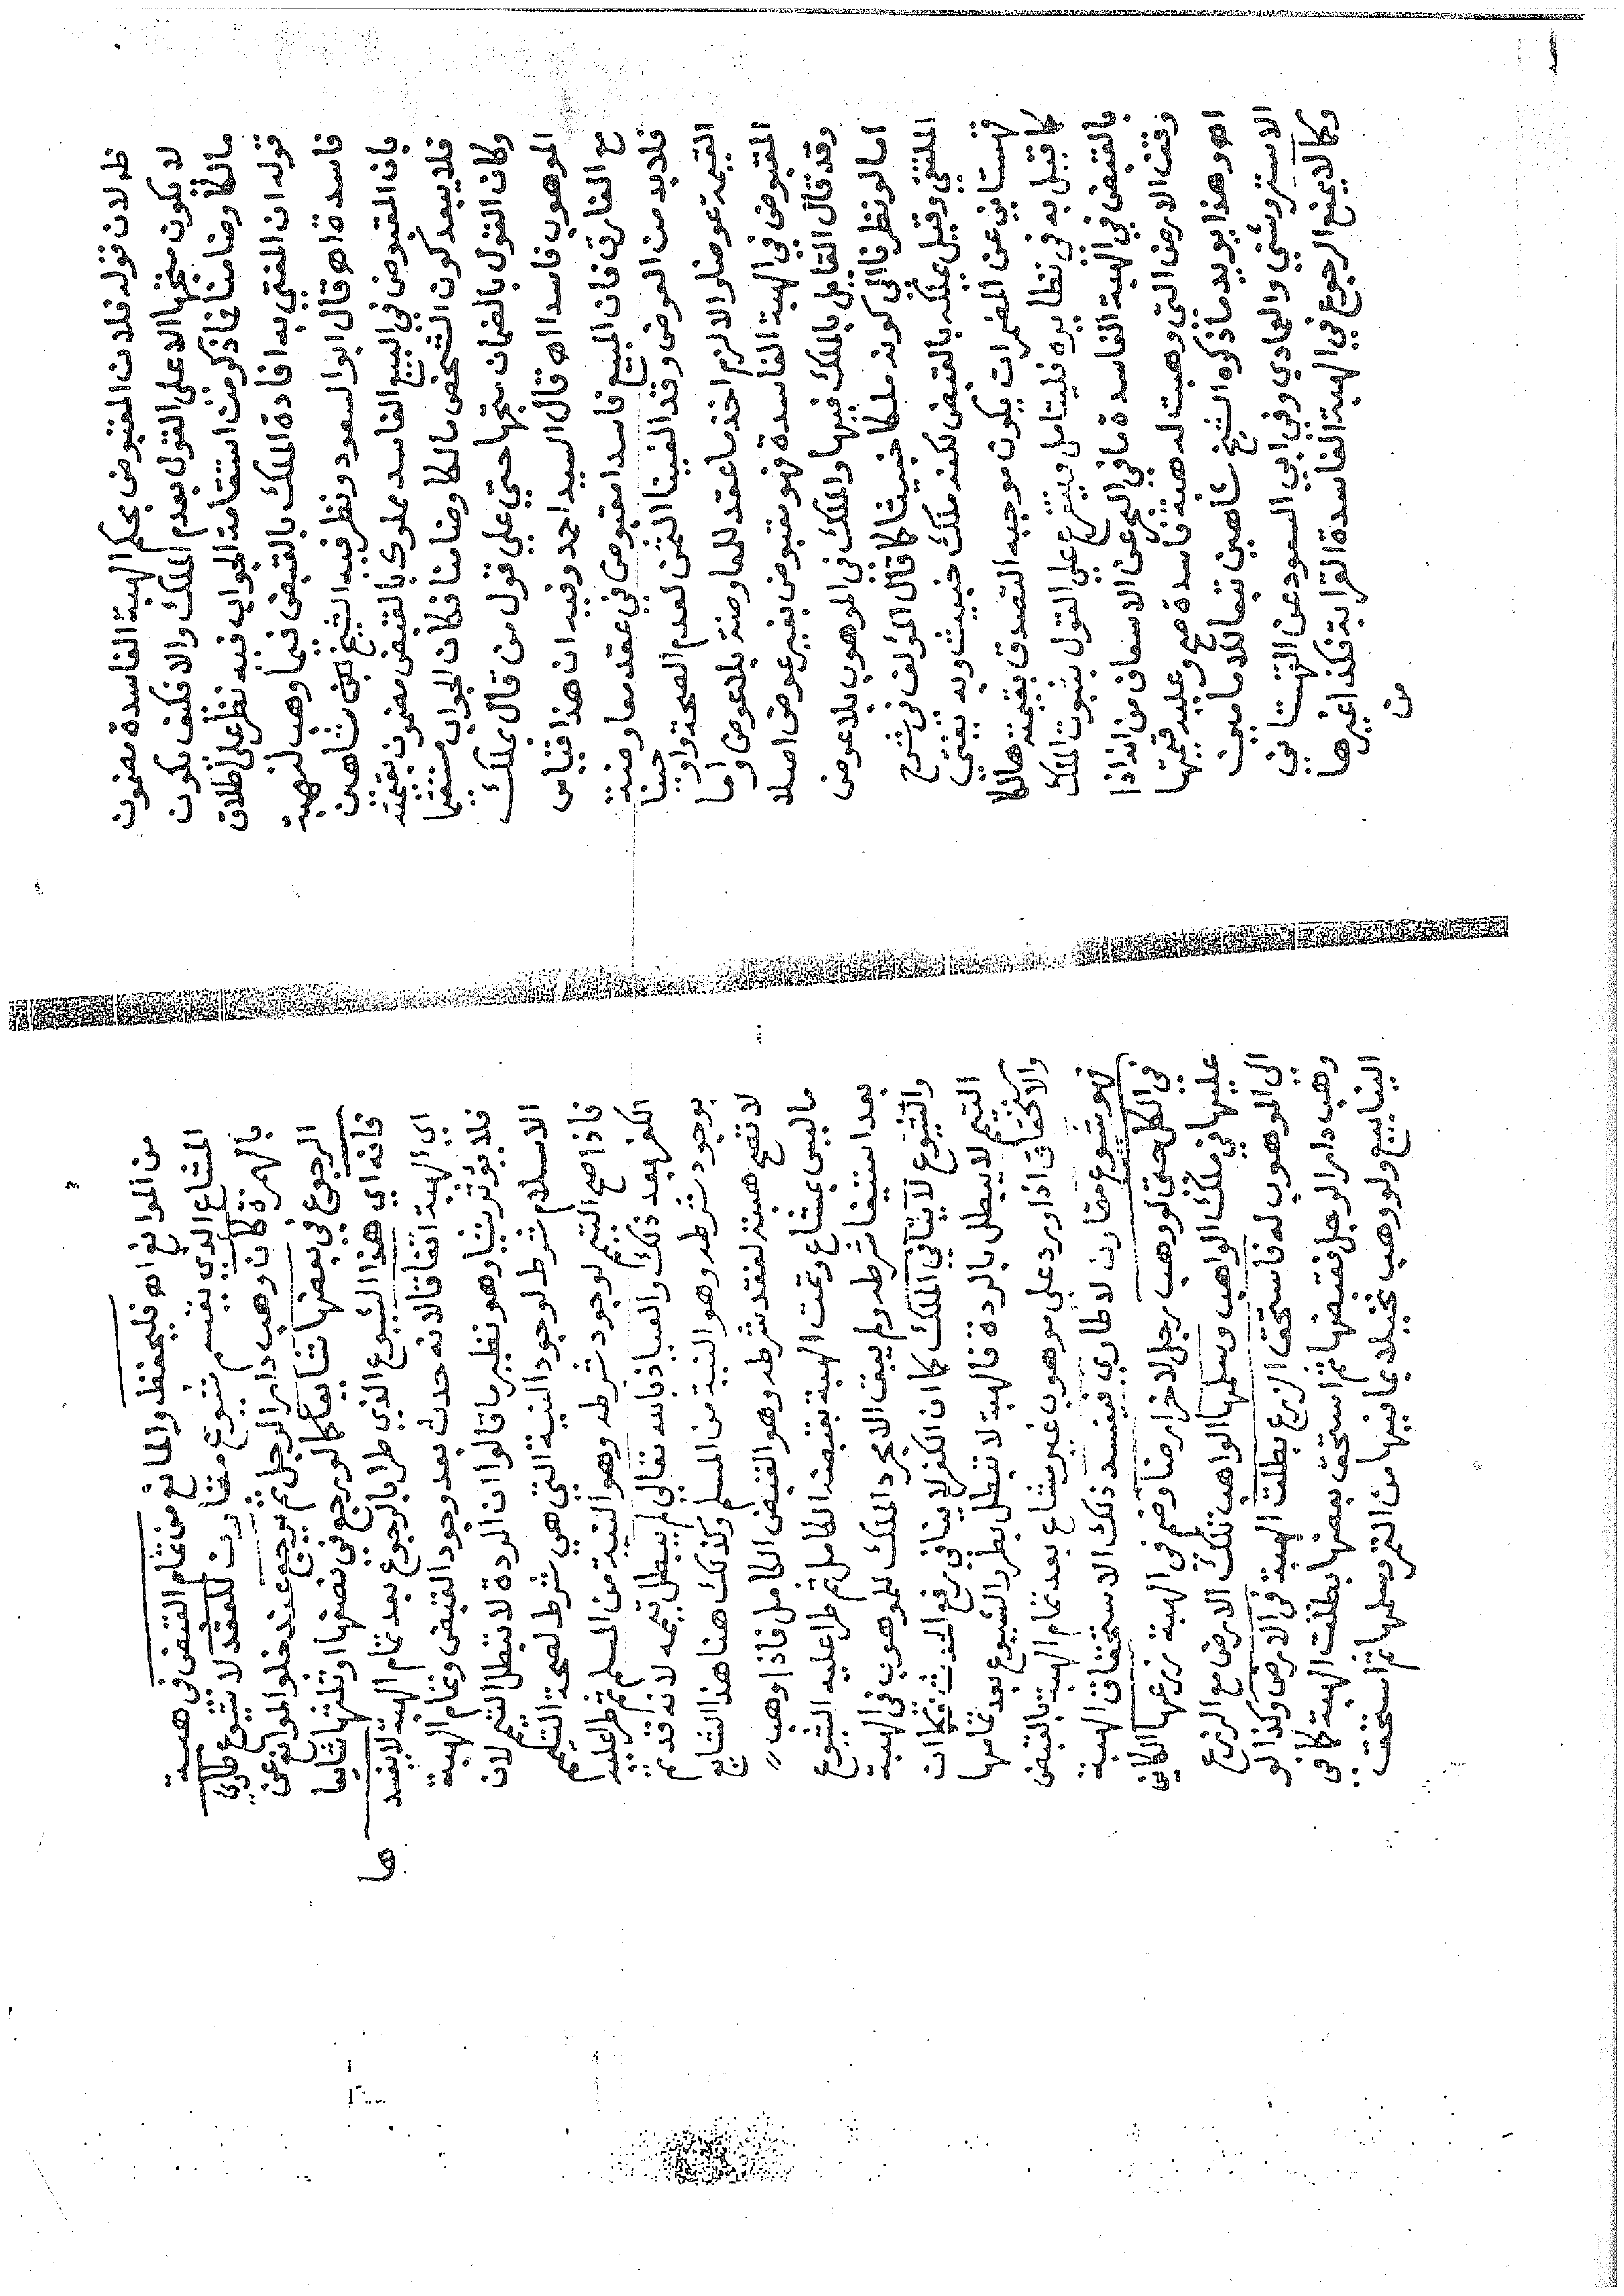 ظه لان قوله فلان المقبوض بحكم الهبة الفاسدة مضمون
لا يكون متجها الا على القول بعدم الملك والا فكيف يكون
مالكا وضامنا فما ذكر من استقامة الجواب فيه نظر على اطلاق
قوله ان المفتي به افادة الملك بالقبض فيما وهب لهبة
فاسدة اه قال ابو السعود ونظر فيه الشيخ شاهين
بان المقبوض في البيع الفاسد مملوك بالقبض مضمون بقيمته
فلا يبعد كون الشخص مالكا وضامنا فكان الجواب مستقيما
وكان القول بالضمان متجها حتي علي قول من قال بملك
الموهوب فاسدا اه قال السيد احمد وفيه ان هذا قياس
مع الفارق فان المبيع فاسدا مقبوض في عقد معاوضة
فلا بد من العوض وقد الغينا الثمن لعدم الصحة واوجبنا
القيمة عوضا والا لزم اخذ ما عقد للمعاوضة بلا عوض واما
المقبوض في الهبة الفاسدة فهو مقبوض بغير عوض اصلا
وقد قال القايل بالملك فيها والملك في الموهوب بلا عوض
اما لو نظرنا الي كونه ملكا خبيثا كما قال المؤلف في شرح
الملتقي وقيل يملكه بالقبض لكنه ملك خبيث وبه يفتي
قهستاني عن المضمرات يكون موجبه التصدق بقيمته هالكا
كما قيل به في نظايره فليتامل ويتفرع علي القول بثبوت الملك
بالقبض في الهبة الفاسدة ما في البحر عن الاسعاف من انه اذا
وقف الارض التي وهبت له هبة فاسدة صح وعليه قيمتها
اه وهذا يويد ما ذكره الشيخ شاهين تبعا للامامين
الاستروشني والعمادي وفي ابي السعود عن القهستاني
وكما لا يمنع الرجوع في الهبة الفاسدة القرابة فكذا غيرها
من
من الموانع اه فليحفظ والمانع من تمام القبض في هبة
المشاع الذي يقسم شيوع مقارن للعقد لا شيوع طارئ
بالهمزة كان وهب دارا لرجل ثم يرجع عند خلو الموانع عن
الرجوع في بعضها شايعا كالو رجع في نصفها او ثلثها شايعا
فانه اي هذا الشيوع الذي طرا بالرجوع بعد تمام الهبة لا يفسدها
اي الهبة اتفاقا لانه حدث بعد وجود القبض وتمام الهبة
فلا يؤثر شيا وهو نظير ما قالوا ان الردة لا تبطل التيمم لان
الاسلام شرط لوجود النية التي هي شرط لصحة التيمم
فاذا صح التيمم لوجود شرطه وهو النية من المسلم ثم طرا عليه
الكفر بعد ذلك والعياذ بالله تعالي لم يبطل تيممه لانه قد تم
بوجود شرطه وهو النية من المسلم وكذلك هنا هذا الشايع
لا تصح هبته لفقد شرطه وهو القبض الكامل فاذا وهب
ما ليس بمشاع وتمت الهبة بقبضه الكامل ثم طرا عليه الشيوع
بعد استيفا شرطه ولم يبق الا مجرد الملك للموهوب في الهبة
والشيوع لا ينافي الملك كما ان الكفر لا ينافي رفع الحدث فكما ان
التيمم لا يبطل بالردة فالهبة لا تبطل بطرو الشيوع بعد تمامها
والاستحقاق اذا ورد علي موهوب غير مشاع بعد تمام الهبة بالقبض
فهو شيوع مقارن لا طاري فيفسد ذلك الاستحقاق الهبة
في الكل حتي لو وهب رجل لاخر ارضا وضم في الهبة زرعها الكاين
عليها في ملك الواهب وسلمها الواهب تلك الارض مع الزرع
الي الموهوب له فاستحق الزرع بطلت الهبة في الارض وكذا لو
وهب دارا لرجل فقبضها ثم استحق بعضها بطلت الهبة كما في
الينابيع ولو وهب نخيلا بما فيها من التمر وسلمها ثم استحقت